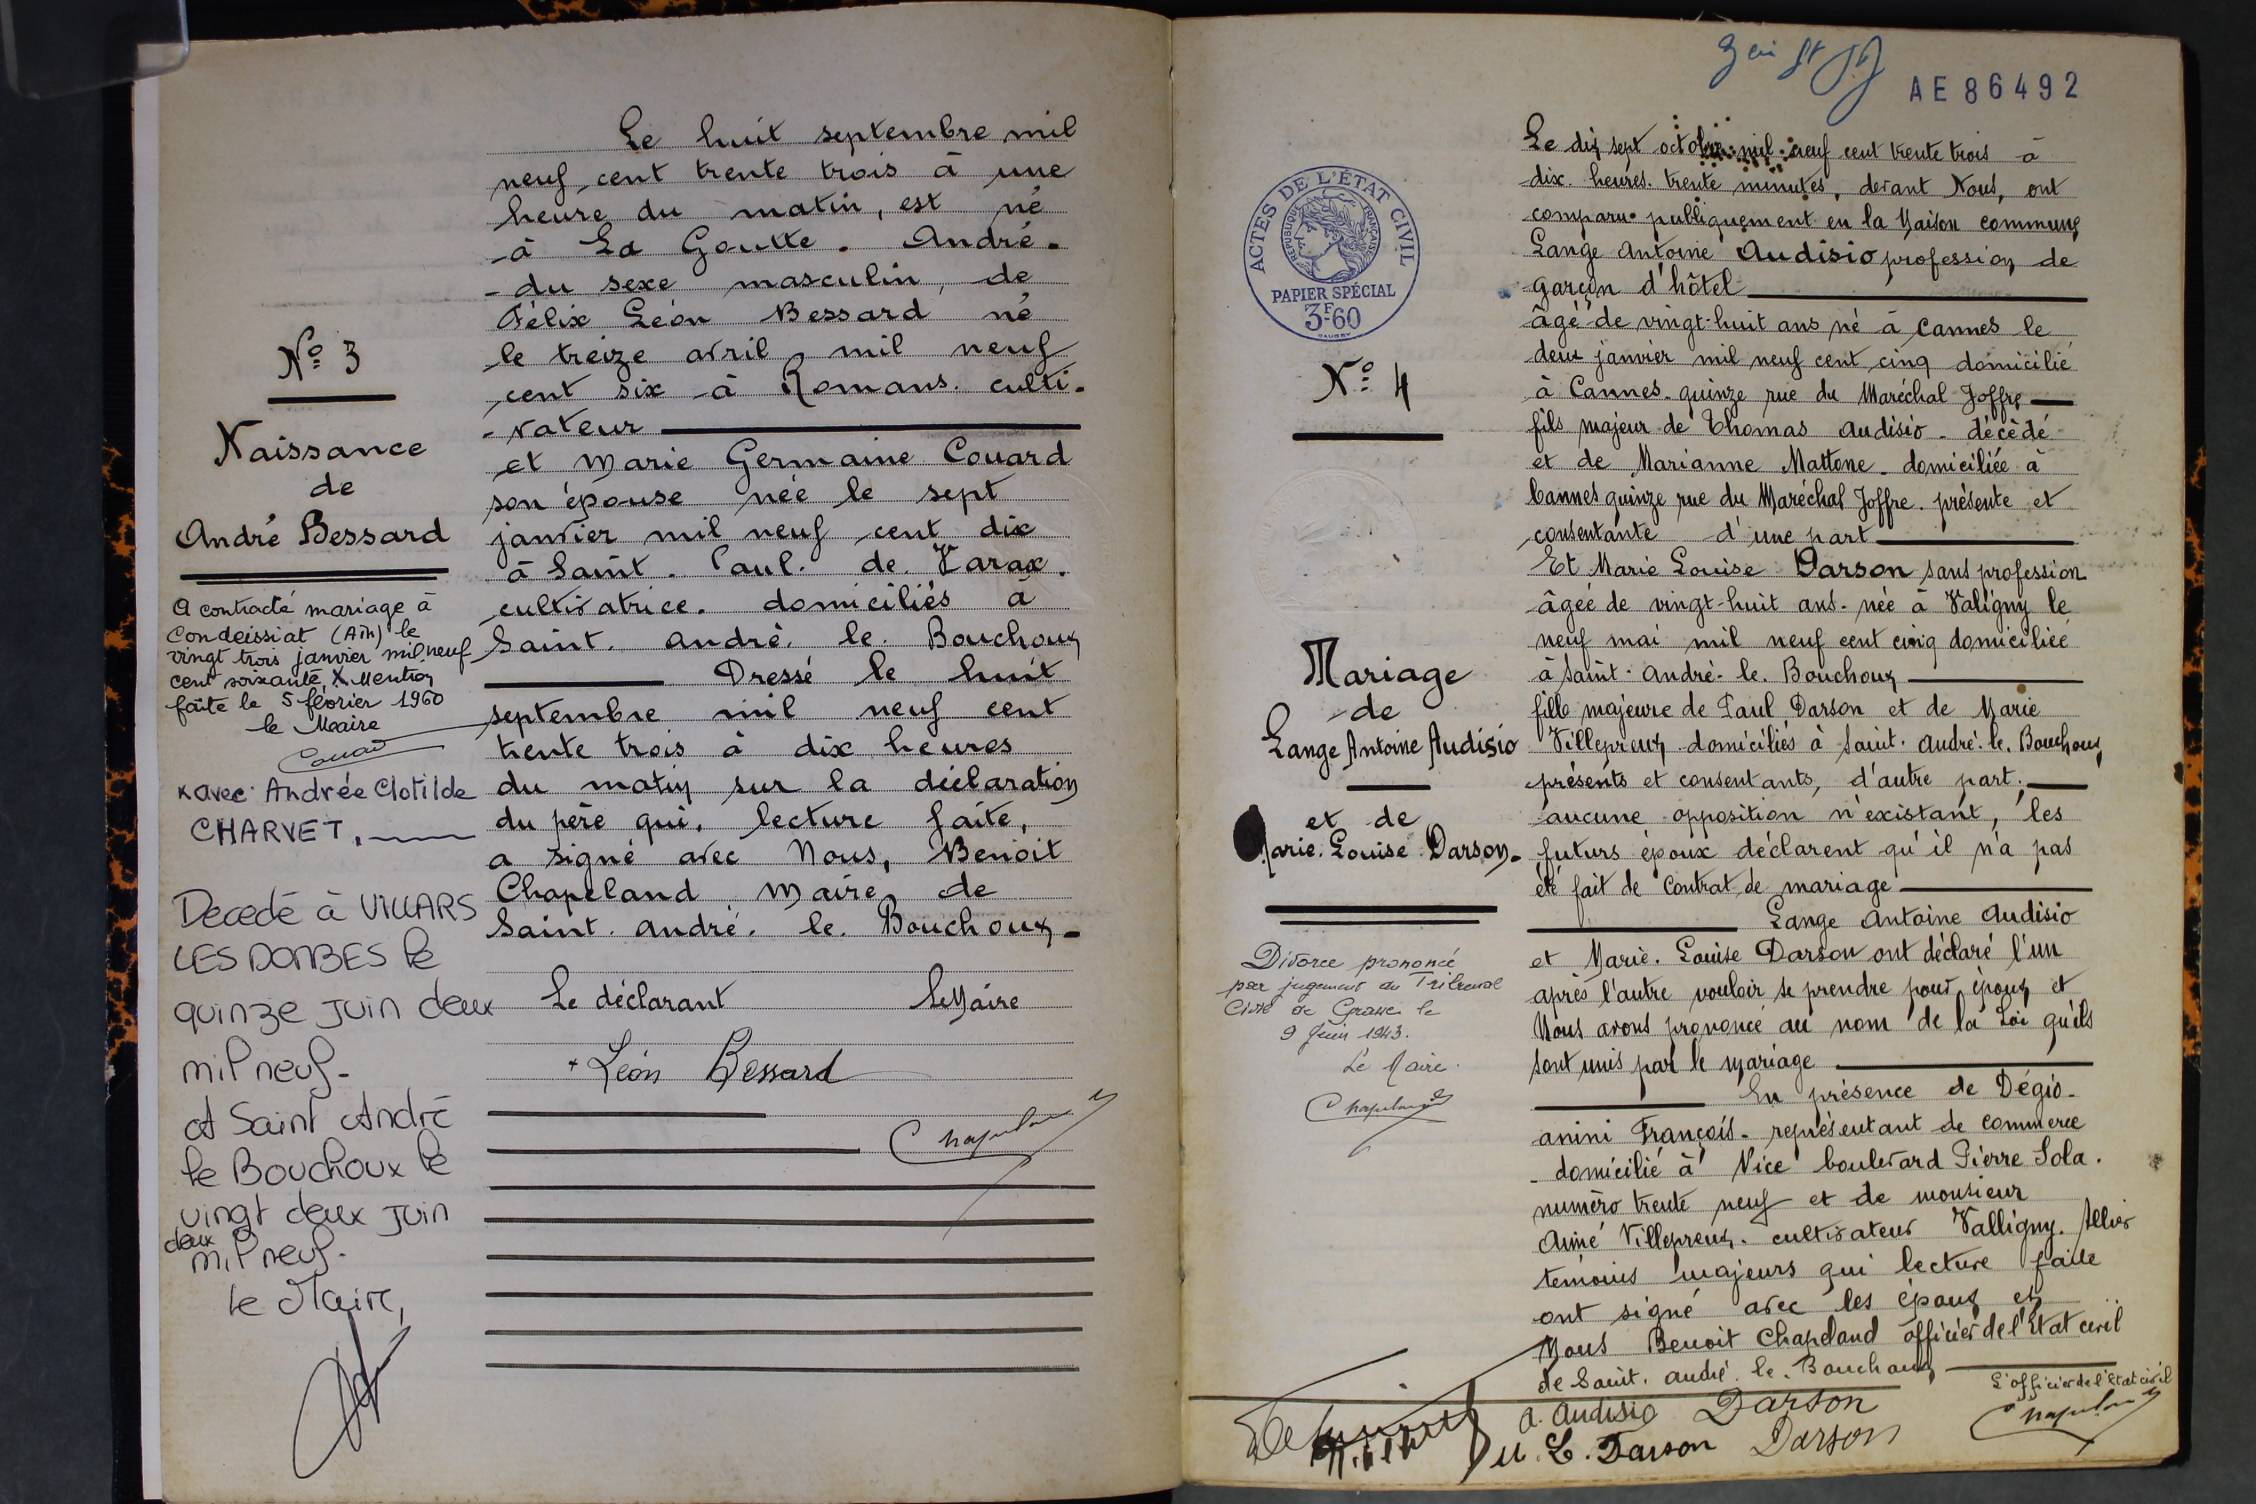 N° 3
Naissance
de
André Bessard
A contracté mariage à
Condeissiat (Ain) le
vingt trois janvier mil neuf
cent soixante, X Mention
faite le 5 février 1960
le Maire
x avec Andrée Clotilde
CHARVET.
Décédé à VILLARS
LES DOMBES le
quinze juin deux
mil neuf.
A Saint André
le Bouchoux le
vingt deux juin
deux
mil neuf.
le Maire,
Le huit septembre mil
neuf cent trente trois à une
heure du matin, est né
à La Goutte. André.
du sexe masculin, de
Félix Léon Bessard né
le treize avril mil neuf
cent six à Romans. culti-
-vateur
et Marie Germaine Couard
son épouse née le sept
janvier mil neuf cent dix
à Saint. Paul. de. Varax.
cultivatrice. domiciliés à
Saint. André. le. Bouchoux
Dressé le huit
septembre mil neuf cent
trente trois à dix heures
du matin sur la déclaration
du père qui, lecture faite,
a signé avec Nous, Benoit
Chapeland Maire de
Saint. André. le. Bouchoux.
Le déclarant Le Maire
Léon Bessard
Chapeland
AE 86492
ACTES DE L'ÉTAT CIVIL
RÉPUBLIQUE FRANÇAISE
PAPIER SPÉCIAL
3F60
N° 4
Mariage
de
Lange Antoine Audisio
et de
Marie. Louise Darson.
Divorce prononcé
par jugement du Tribunal
Civil de Grasse le
9 Juin 1943.
Le Maire.
Chapeland
Le dix sept octobre mil neuf cent trente trois à
dix heures. trente minutes, devant Nous, ont
comparu publiquement en la Maison commune
Lange Antoine Audisio profession de
garçon d'hôtel
âgé de vingt-huit ans né à Cannes le
deux janvier mil neuf cent cinq domicilié
à Cannes. quinze rue du Maréchal Joffre
fils majeur de Thomas Audisio - décédé
et de Marianne Mattone - domiciliée à
Cannes quinze rue du Maréchal Joffre. présente et
consentante d'une part
Et Marie Louise Darson sans profession
âgée de vingt-huit ans. née à Valigny le
neuf mai mil neuf cent cinq domiciliée
à Saint. André. le. Bouchoux
fille majeure de Paul Darson et de Marie
Villepreux domiciliés à Saint. André. le. Bouchoux,
présents et consentants, d'autre part.
aucune opposition n'existant, les
futurs époux déclarent qu'il n'a pas
été fait de Contrat de mariage
Lange Antoine Audisio
et Marie. Louise Darson ont déclaré l'un
après l'autre vouloir se prendre pour époux et
Nous avons prononcé au nom de la Loi qu'ils
sont unis par le mariage
En présence de Dégio-
anini François - représentant de commerce
domicilié à Nice boulevard Pierre Sola.
numéro trente neuf et de monsieur
Aimé Villepreux. cultivateur Valligny. Allier
témoins majeurs qui lecture faite
ont signé avec les époux et
Nous Benoit Chapeland officier de l'Etat civil
de Saint. André. le. Bouchoux
L'officier de l'état civil
A. Audisio Darson
M. L. Darson Darson
Chapeland